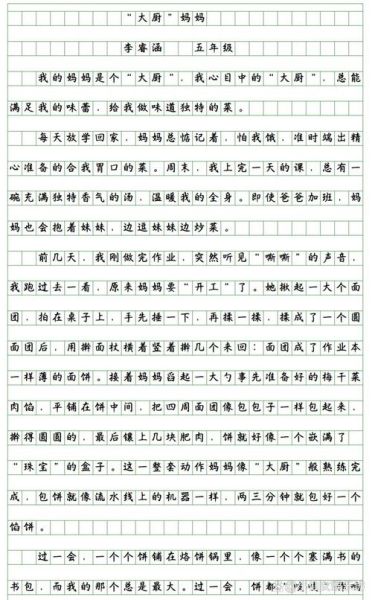 “大厨”妈妈
李睿涵 五年级
我的妈妈是个“大厨”，我心目中的“大厨”，总能
满足我的味蕾，给我做味道独特的菜。
每天放学回家，妈妈总惦记着，怕我饿，准时端出精
心准备的合我胃口的菜。周末，我上完一天的课，总有一
碗充满独特香气的汤，温暖我的全身。即使爸爸加班，妈
妈也会抱着妹妹，边逗妹妹边炒菜。
前几天，我刚做完作业，突然听见“嘶嘶”的声音，
我跑过去一看，原来妈妈要“开工”了。她掀起一大个面
团，拍在桌子上，手先捶一下，再揉一揉，揉成了一个圆
面团后，用擀面杖横着竖着擀几个来回：面团成了作业本
一样薄的面饼。接着妈妈舀起一大勺事先准备好的梅干菜
肉馅，平铺在饼中间，把四周面团像包包子一样包起来，
擀得圆圆的，最后镶上几块肥肉，饼就好像一个嵌满了
“珠宝”的盒子。这一整套动作妈妈像“大厨”般熟练完
成，包饼就像流水线上的机器一样，两三分钟就包好一个
馅饼。
过一会，一个个饼铺在烙饼锅里，像一个个塞满书的
书包，而我的那个总是最大。过一会，饼都